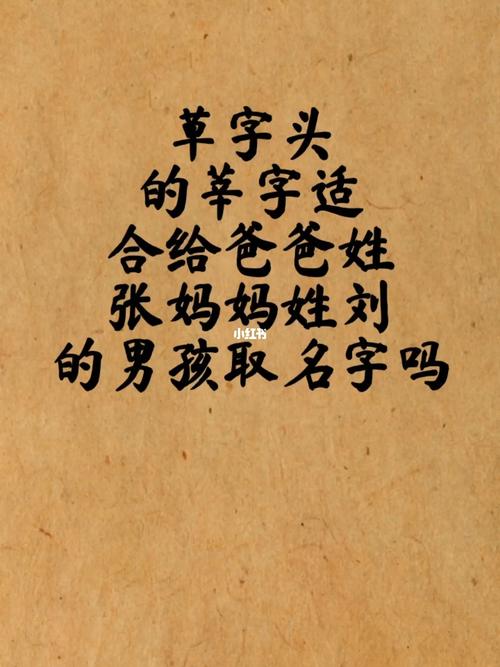 草字头
的莘字适
合给爸爸姓
张妈妈姓刘
小红书
的男孩取名字吗